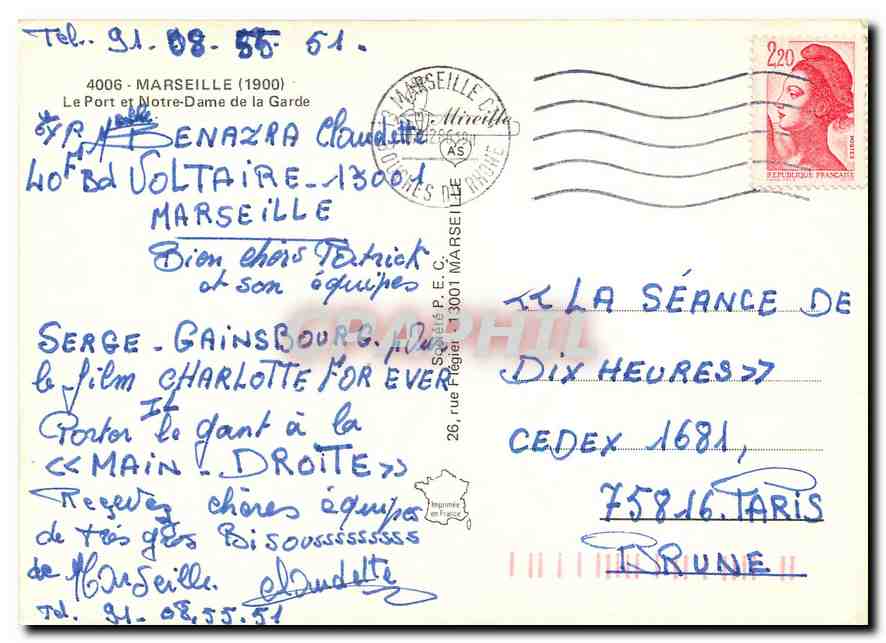 Tel. 91. 08. 55. 51.
4006 - MARSEILLE (1900)
Le Port et Notre-Dame de la Garde
EXP. Melle BENAZRA Claudette
40 Bd VOLTAIRE - 13001
MARSEILLE
Bien chers Patrick
et son équipes
SERGE - GAINSBOURG. pour
le film CHARLOTTE FOR EVER
IL
Porter le gant à la
<< MAIN - DROITE >>
Recevez chères équipes
de très gros Bisousssssssss
de Marseille. Claudette
Tel. 91- 08.55.51
Société P.E.C.
26, rue Flégier - 13001 MARSEILLE
Imprimée
en France
MARSEILLE
BOUCHES DU RHONE
Mireille
AS
2,20
REPUBLIQUE FRANÇAISE
<< LA SÉANCE DE
DIX HEURES >>
CEDEX 1681,
75816. PARIS
BRUNE
CPAPHIL